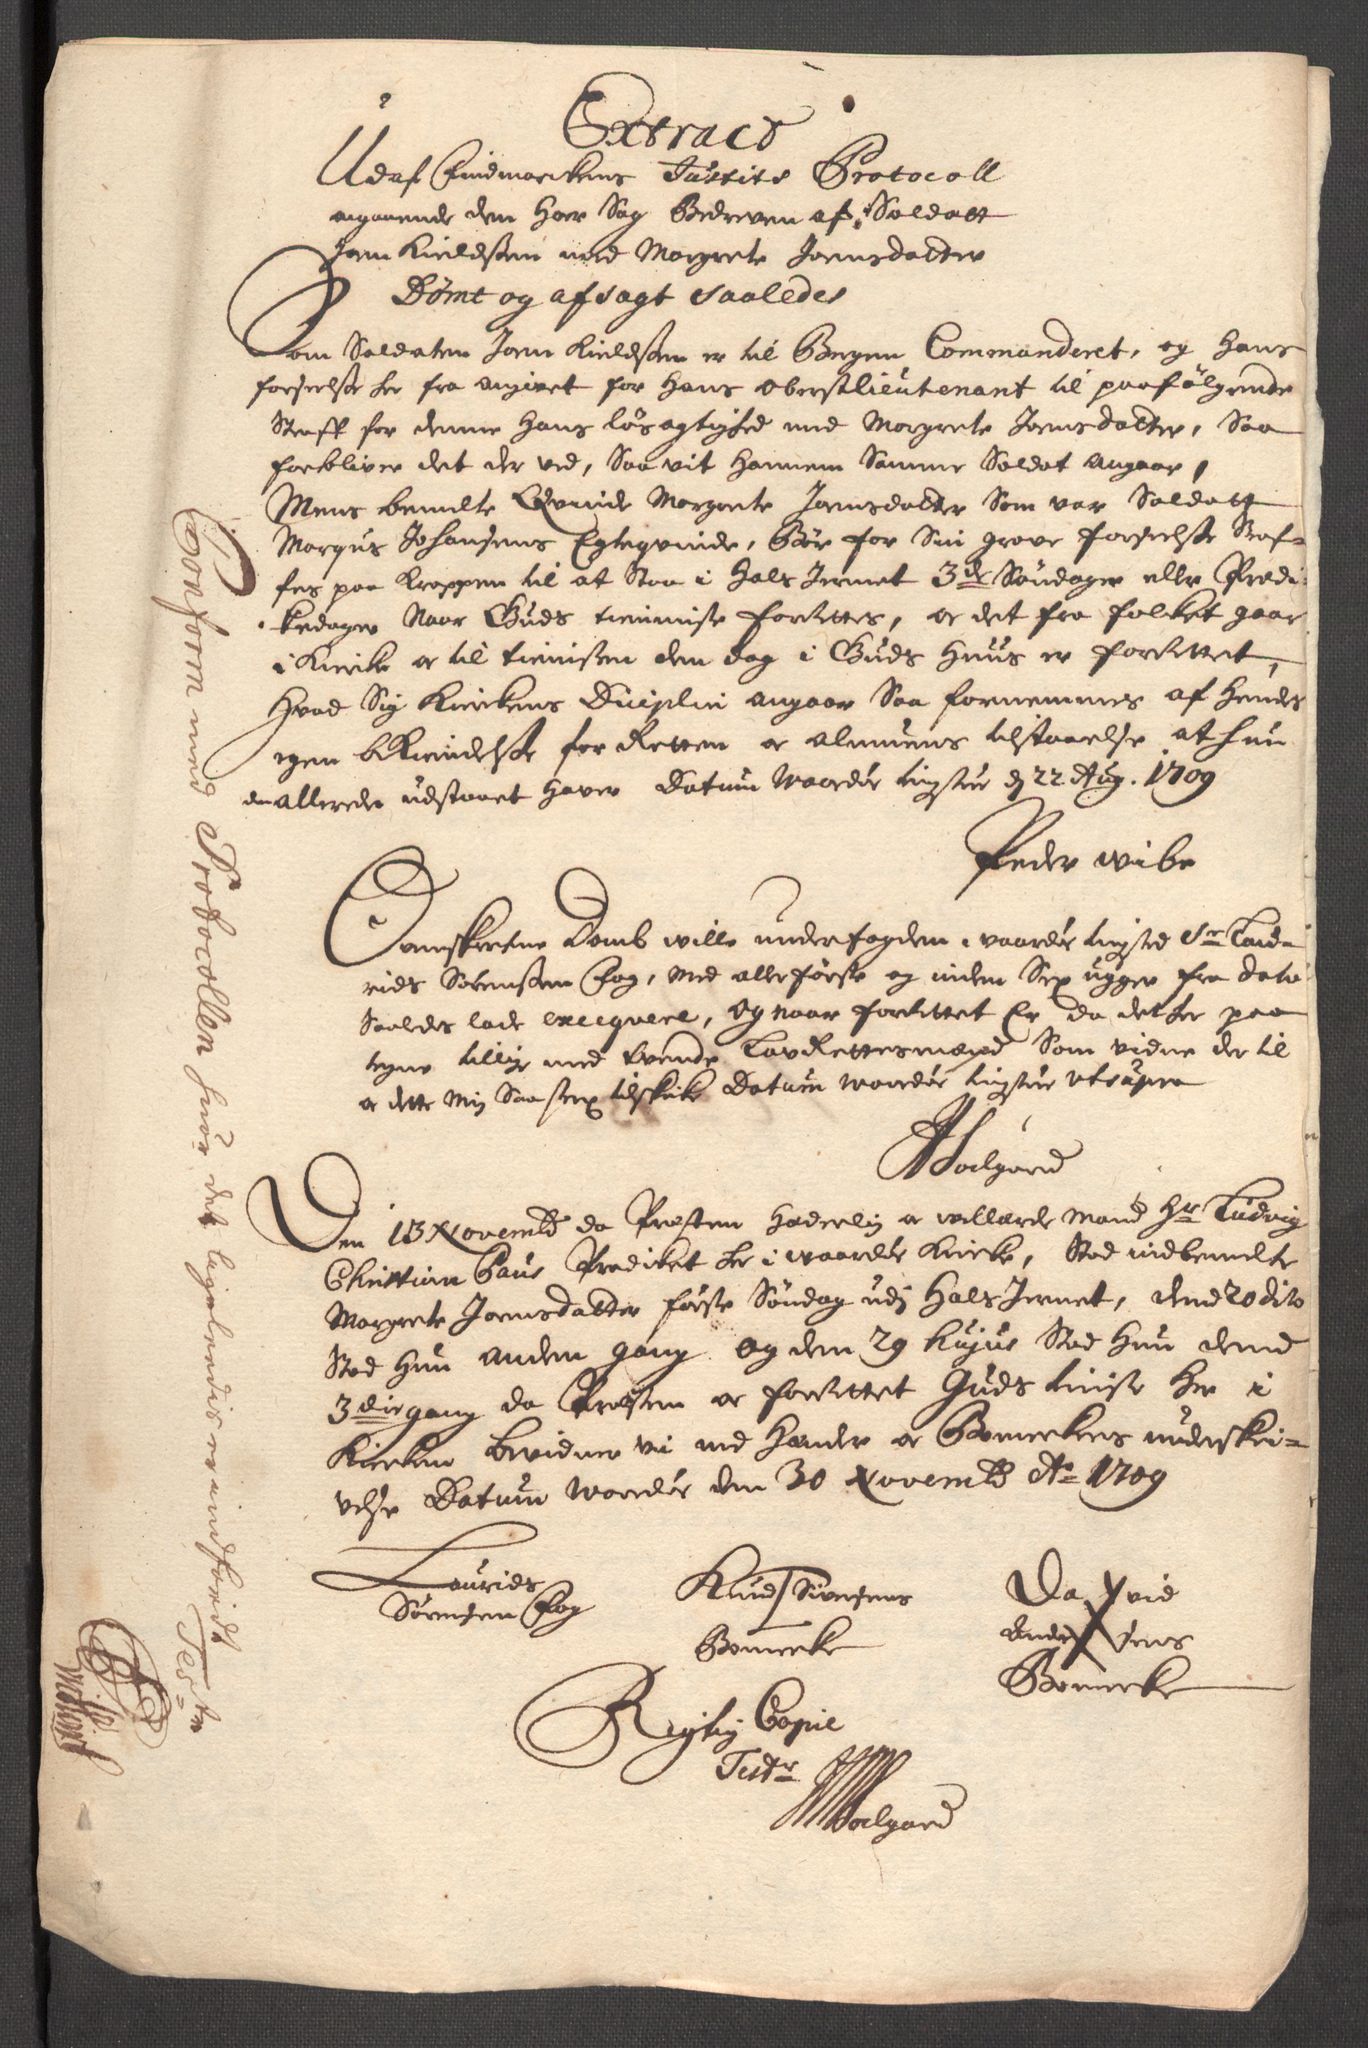 Extract
Udaf Findmarckens Justits Protocoll
angaaende dem Hoer Sag Bedreven af Soldatt
Joen Kieldssøn med Margrete Joensdatter
Dømt og afsagt saaledes
Som Soldaten Joen Kieldssøn er til Bergen Commanderet, og hans
forseelse her fra angivet for hans oberstlieutenant til paafølgende
Straff for denne hans løsagtighed med Margrete Joensdatter, Saa
forbliver det der ved, Saa vit hannem Samme Soldat angaar,
Mens bemelte Qvinde Margrete Joensdatter Som var Soldatt
Marqus Johansens Egteqvinde, Bør for Sin grove forseelse Straf-
fes paa kroppen til at Staa i Hals Jernet 3de Søndager eller Prædi-
kedager Naar Guds tienniste forrettes, og det fra folket gaar
i Kircke og til tienisten den dag i Guds Huus er forrettet,
Hvad Sig Kirckens Diciplin angaar Saa fornemmes af hendes
egen bekiendelse for Retten og almuens tilstaaelse at hun
den allerede udstaaet haver Datum Waardøe tingstue d 22 Aug. 1709
Peder Wibe
Ofvanskrefne Domb wille underfogden i waardøe tingsted Sr Laud-
rids Sørenssen Fog, med allerførste og inden Sex ugger fra dato
Saaledes lade execqvere, og naar forrettet Er da det her paa
tegne tillige med tvende LavRettesmænd Som vidne der til
og dette Mig Saa strax tilskicke Datum waardøe tingstue ut supra
Soelgaard
Den 13 Novemb: da Præsten Hæderlig og wellærde Mand Hr Ludvig
Christian Paus Prædiket her i waardøe Kircke, Stod indbemelte
Margrete Joensdatter første Søndag udj Hals Jernet, dend 20 dito
Stod Hun anden gang og den 29 hujus Stod Hun dend
3die gang da Præsten og forrettet Guds tieniste her i
Kircken bevidner vi med Hænder og Bomerkers underskri-
velse Datum Waardøe den 30 Novemb: Ao 1709
Laurids
Sørensen Fog
Knud Sivesens
Bomerke
David
Anders sens
Bomerke
Rigtig Copie
Test:
Soelgaard
Conform med Protocollen huor det ligeledis er indført
Test: